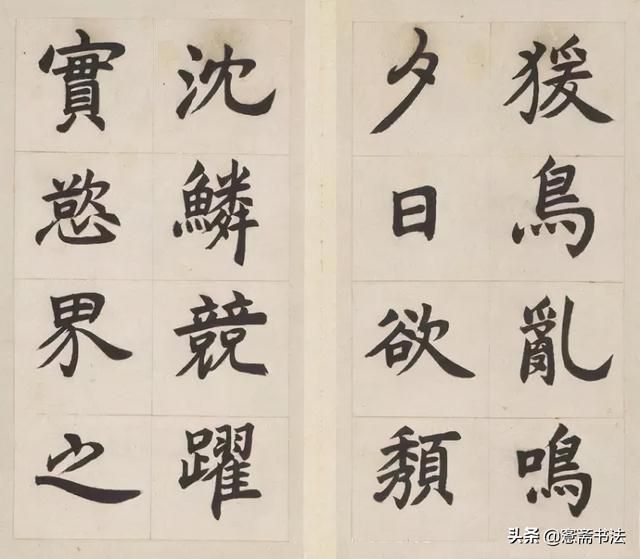 猨鳥亂鳴
夕日欲頹
沈鱗競躍
實慾界之
头条@愙斋书法